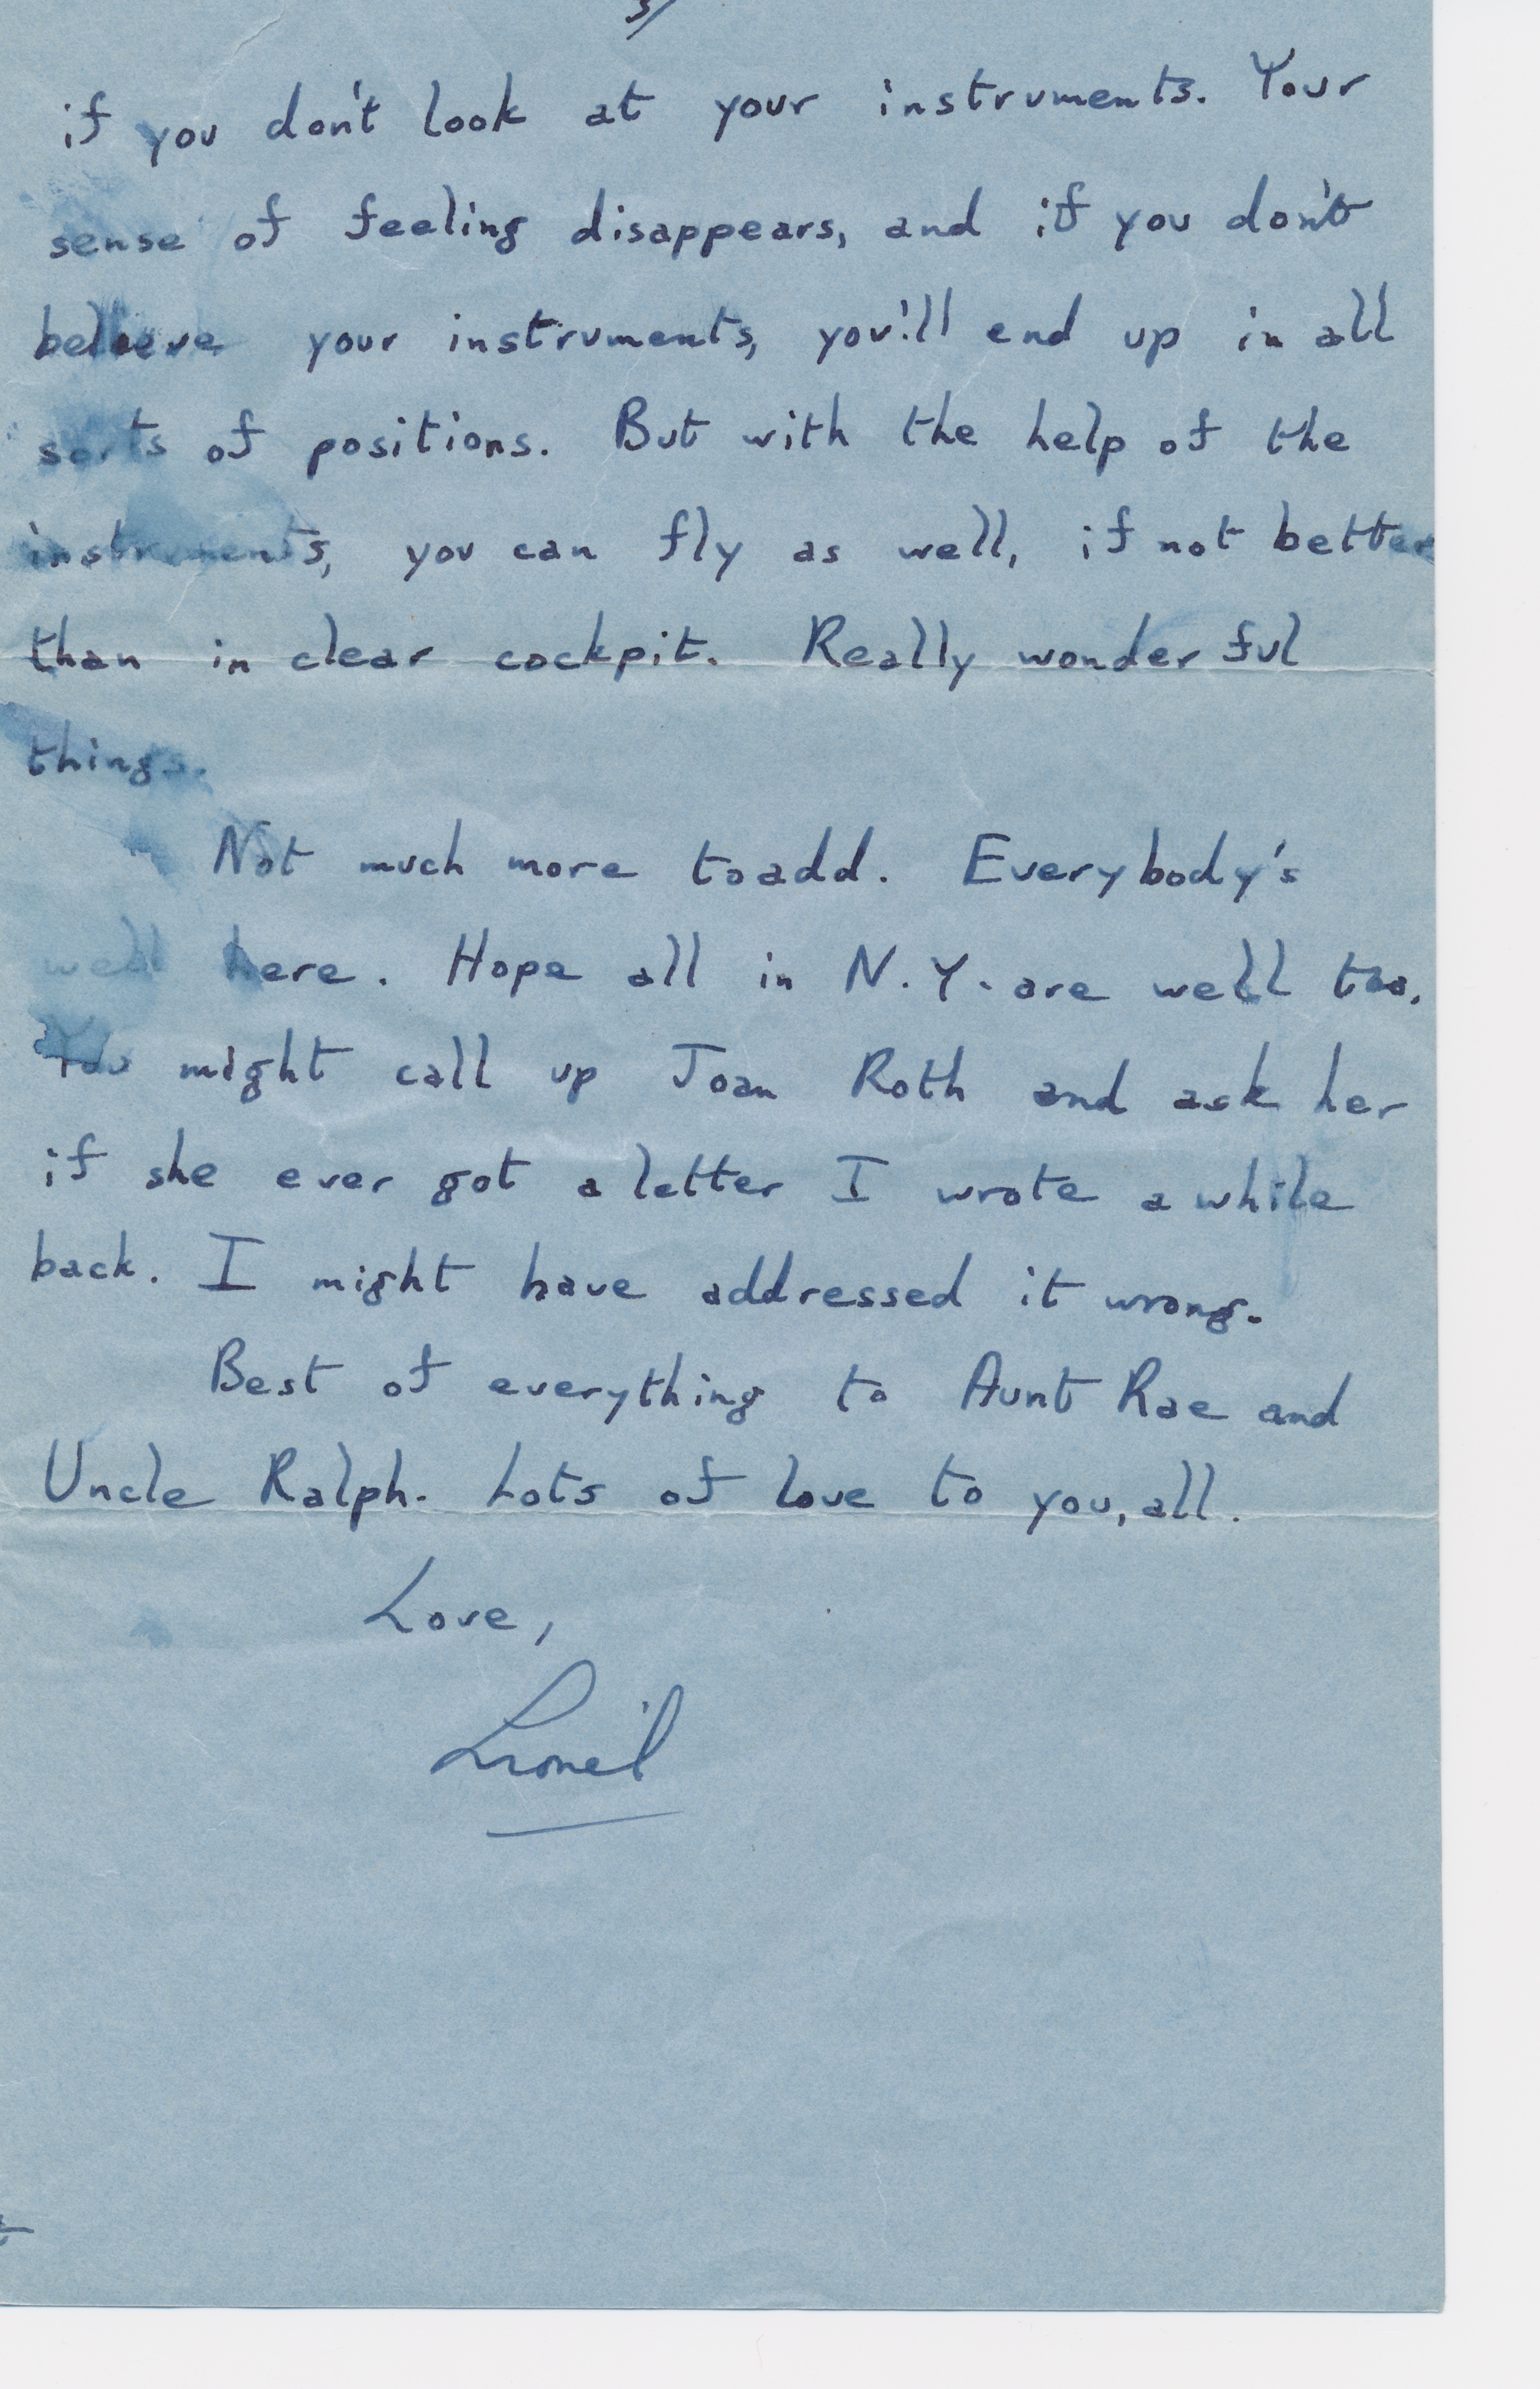 3/
if you don't look at your instruments. Your
sense of feeling disappears, and if you don't
believe your instruments, you'll end up in all
sorts of positions. But with the help of the
instruments, you can fly as well, if not better
than in clear cockpit. Really wonderful
things.
Not much more to add. Everybody's
well here. Hope all in N.Y. are well too.
You might call up Joan Roth and ask her
if she ever got a letter I wrote a while
back. I might have addressed it wrong.
Best of everything to Aunt Rae and
Uncle Ralph. Lots of love to you, all.
Love,
Lionel